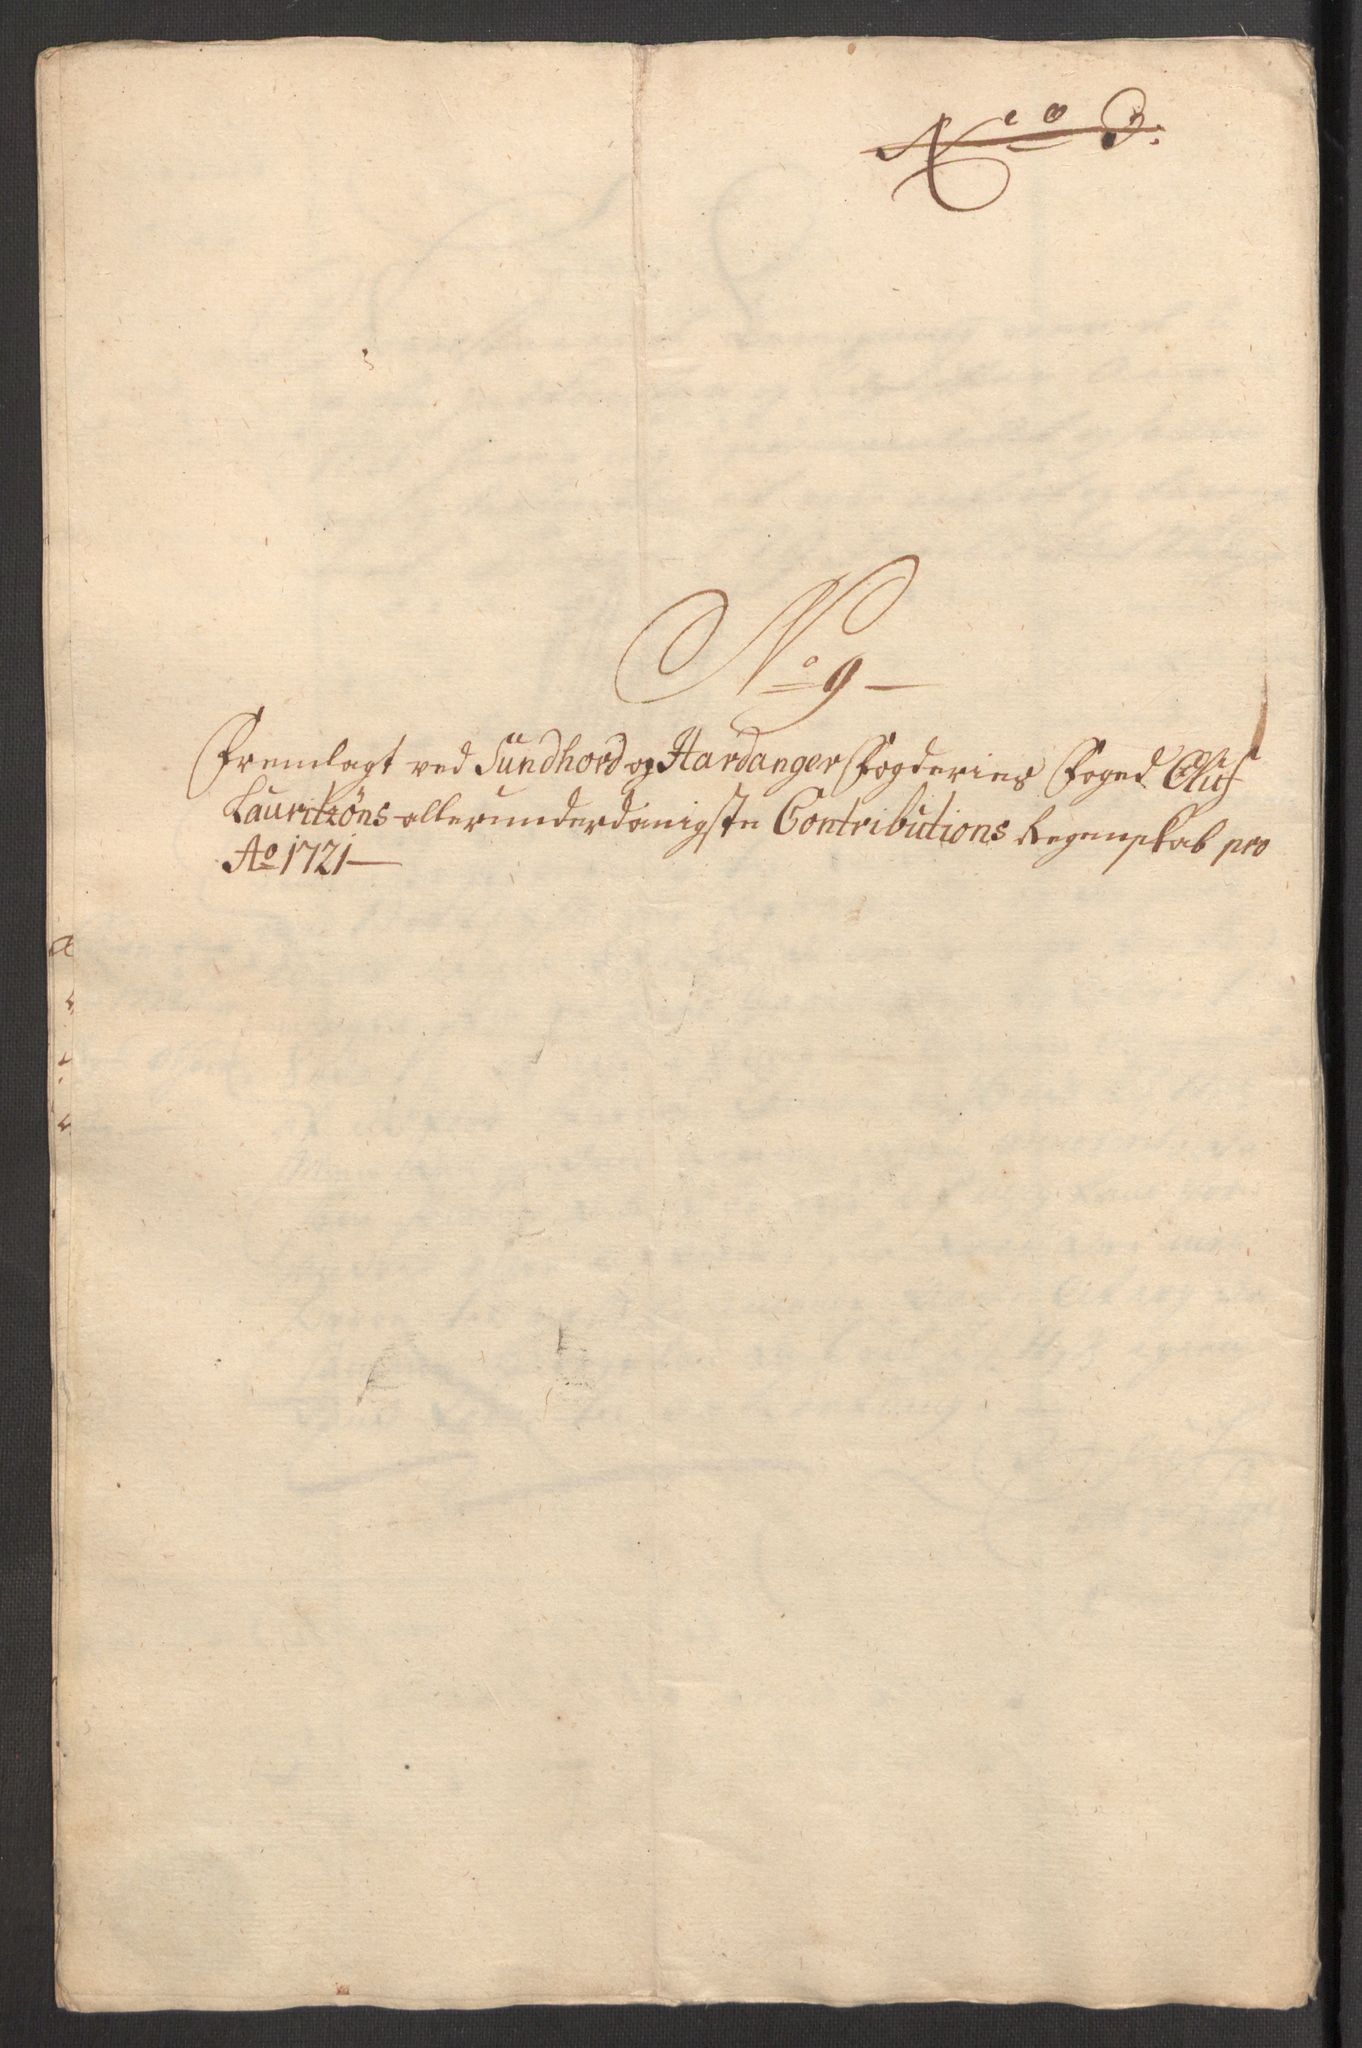 No 3.
No 9
Fremlagt ved Sundhord og Hardanger Fogderies Foged Oluf
Lauritzöns allerunderdanigste Contributions Regenskab pro
Ao 1721